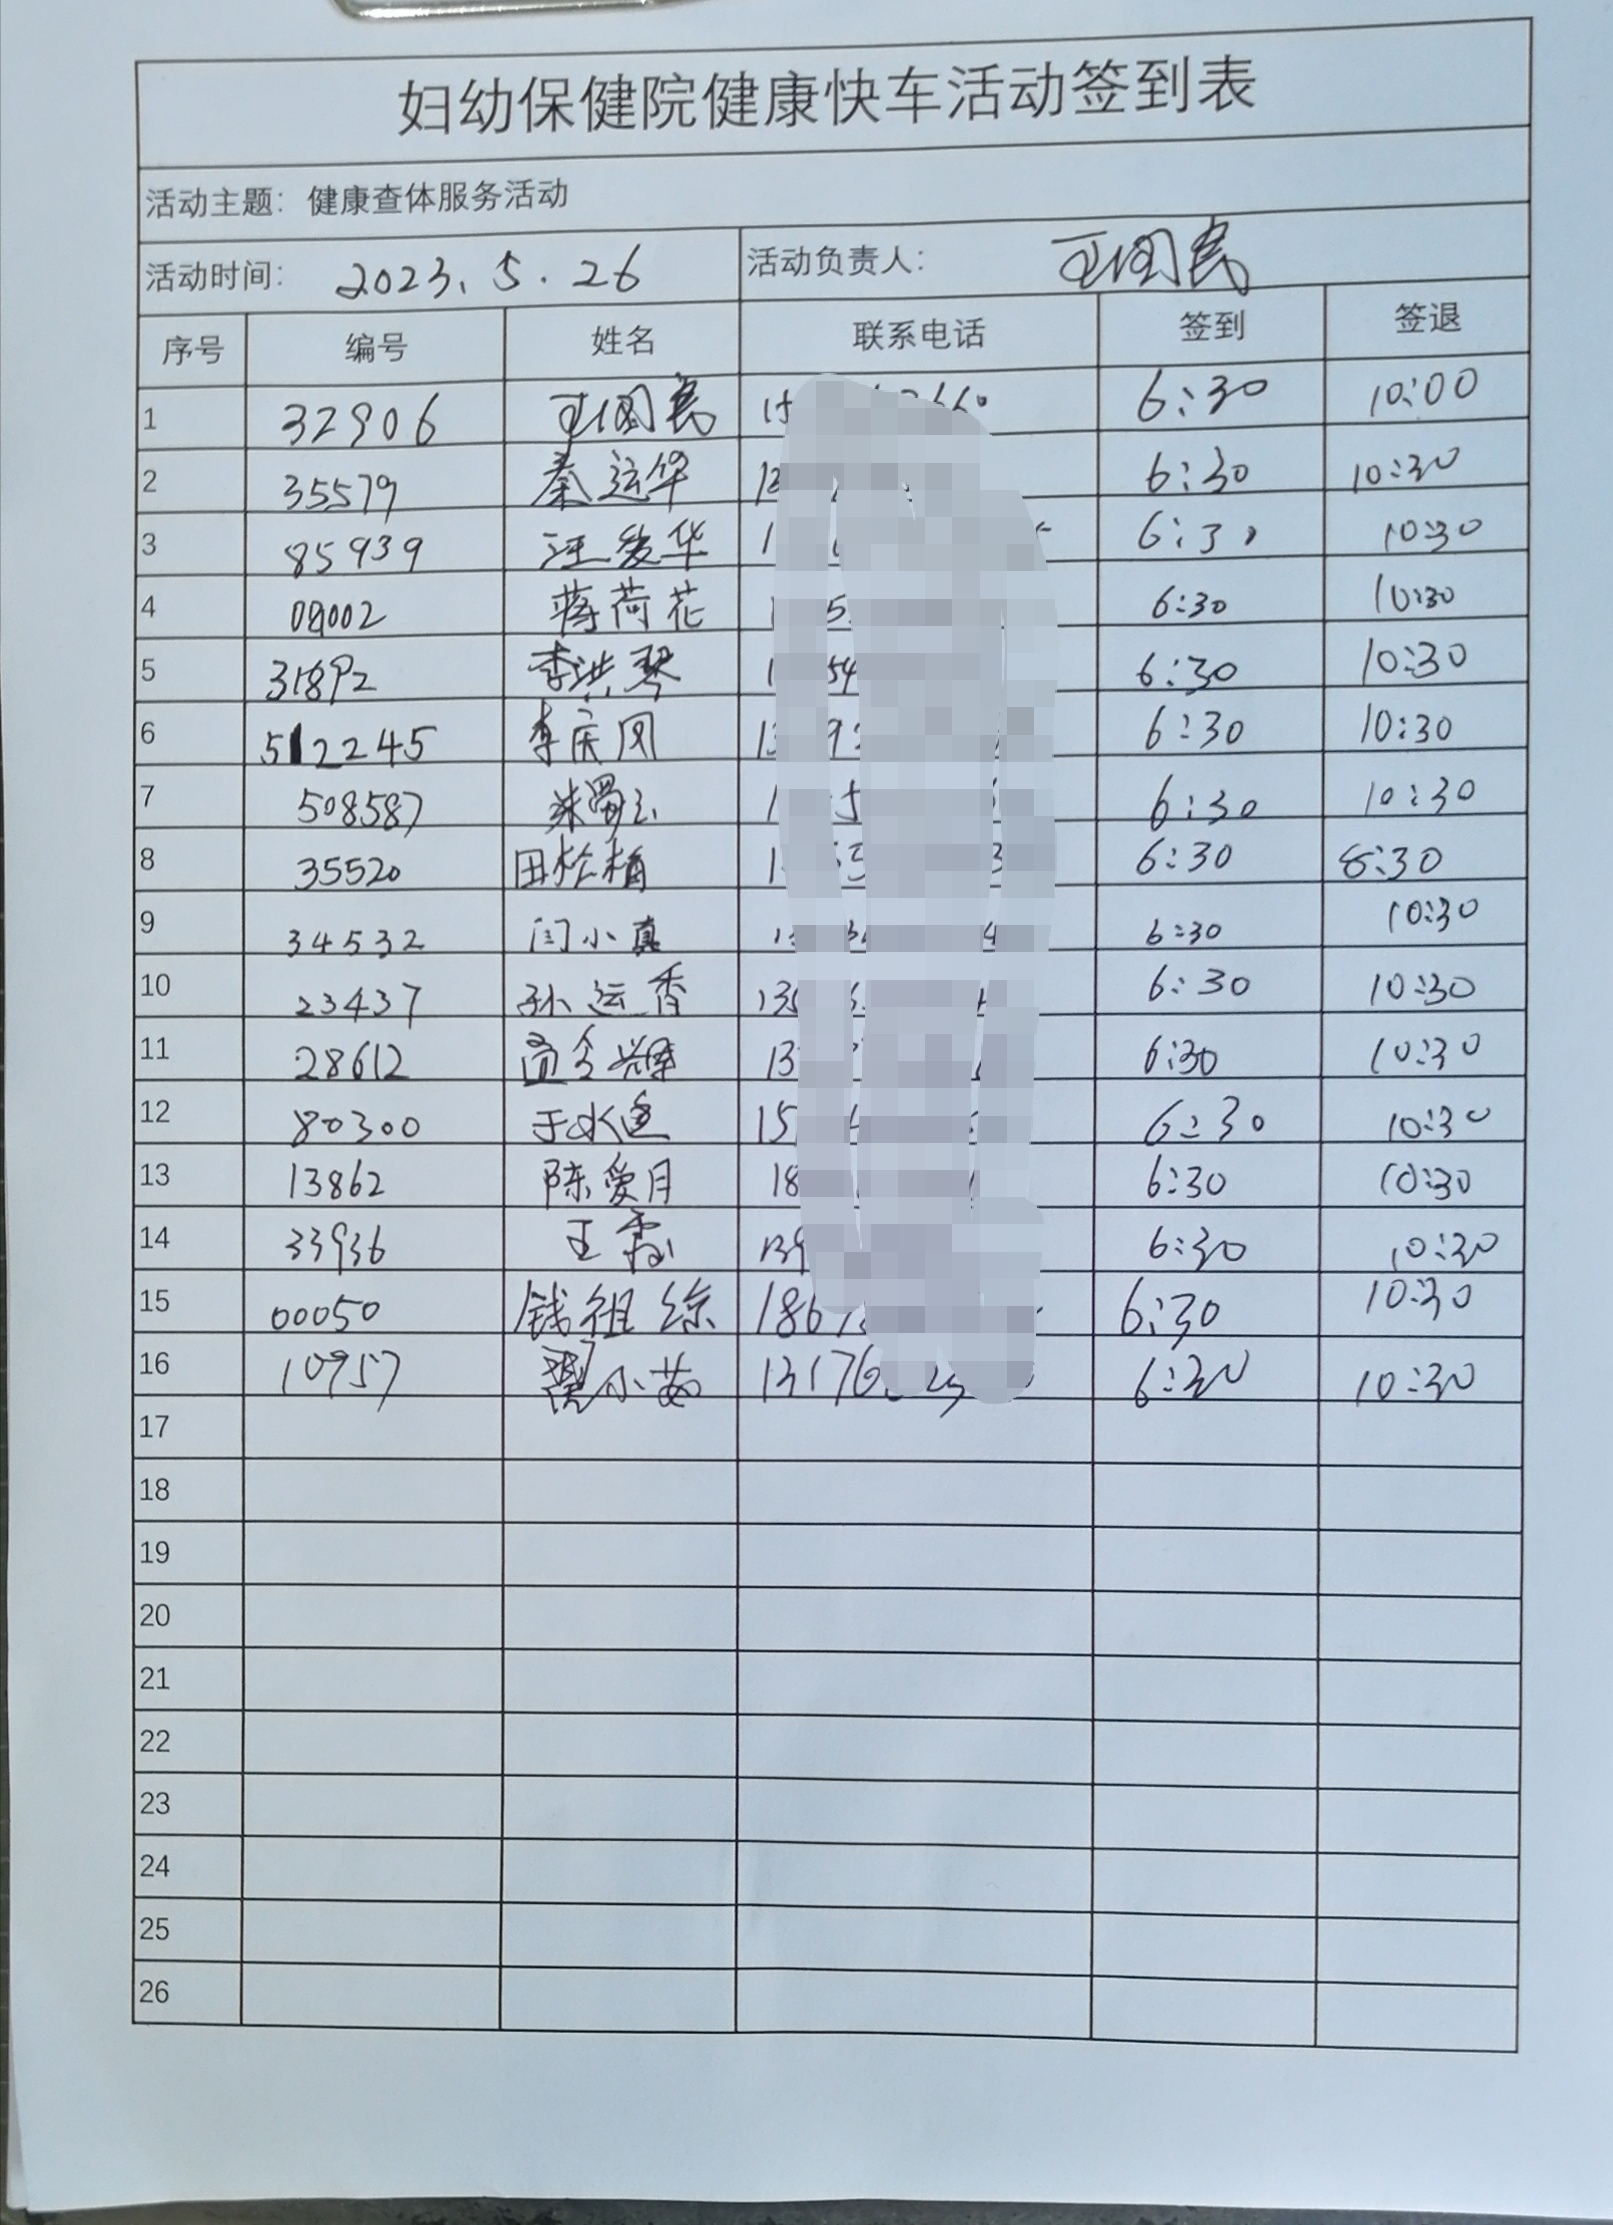 妇幼保健院健康快车活动签到表
活动主题：健康查体服务活动
活动时间： 2023.5.26 活动负责人： 王国民
序号 编号 姓名 联系电话 签到 签退
1 32906 王国民 15 6:30 10:00
2 35579 秦运华 6:30 10:30
3 85939 汪爱华 1 6:30 10:30
4 蒋荷花 1 6:30 10:30
5 31892 李洪琴 1 54 6:30 10:30
6 512245 李庆凤 13 6:30 10:30
7 508587 朱蜀 1 6:30 10:30
8 35520 田松梅 1 6:30 8:30
9 34532 闫小真 6:30 10:30
10 23437 孙运香 13 6:30 10:30
11 28612 13 6:30 10:30
12 80300 于水 15 6:30 10:30
13 13862 陈爱月 18 6:30 10:30
14 33936 王霞 139 6:30 10:30
15 00050 钱祖綜 186 6:30 10:30
16 10957 小茹 13176 6:30 10:30
17
18
19
20
21
22
23
24
25
26